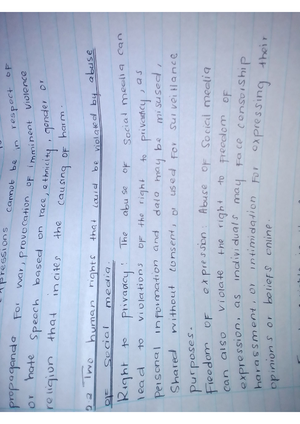 expressions cannot be in respect of
propaganda for war, provocation of imminent violence
or hate speech based on race, ethnicity, gender or
religion that incites the causing of harm.
2.2 Two human rights that could be violated by abuse
of social media.
Right to privacy: The abuse of social media can
lead to violations of the right to privacy, as
Personal information and data may be misused,
Shared without consent, or used for surveillance
purposes.
Freedom of expression Abuse of Social media
can also violate the right to freedom of
expression, as individuals may face censorship
harassment, or intimidation for expressing their
opinions or beliefs online.